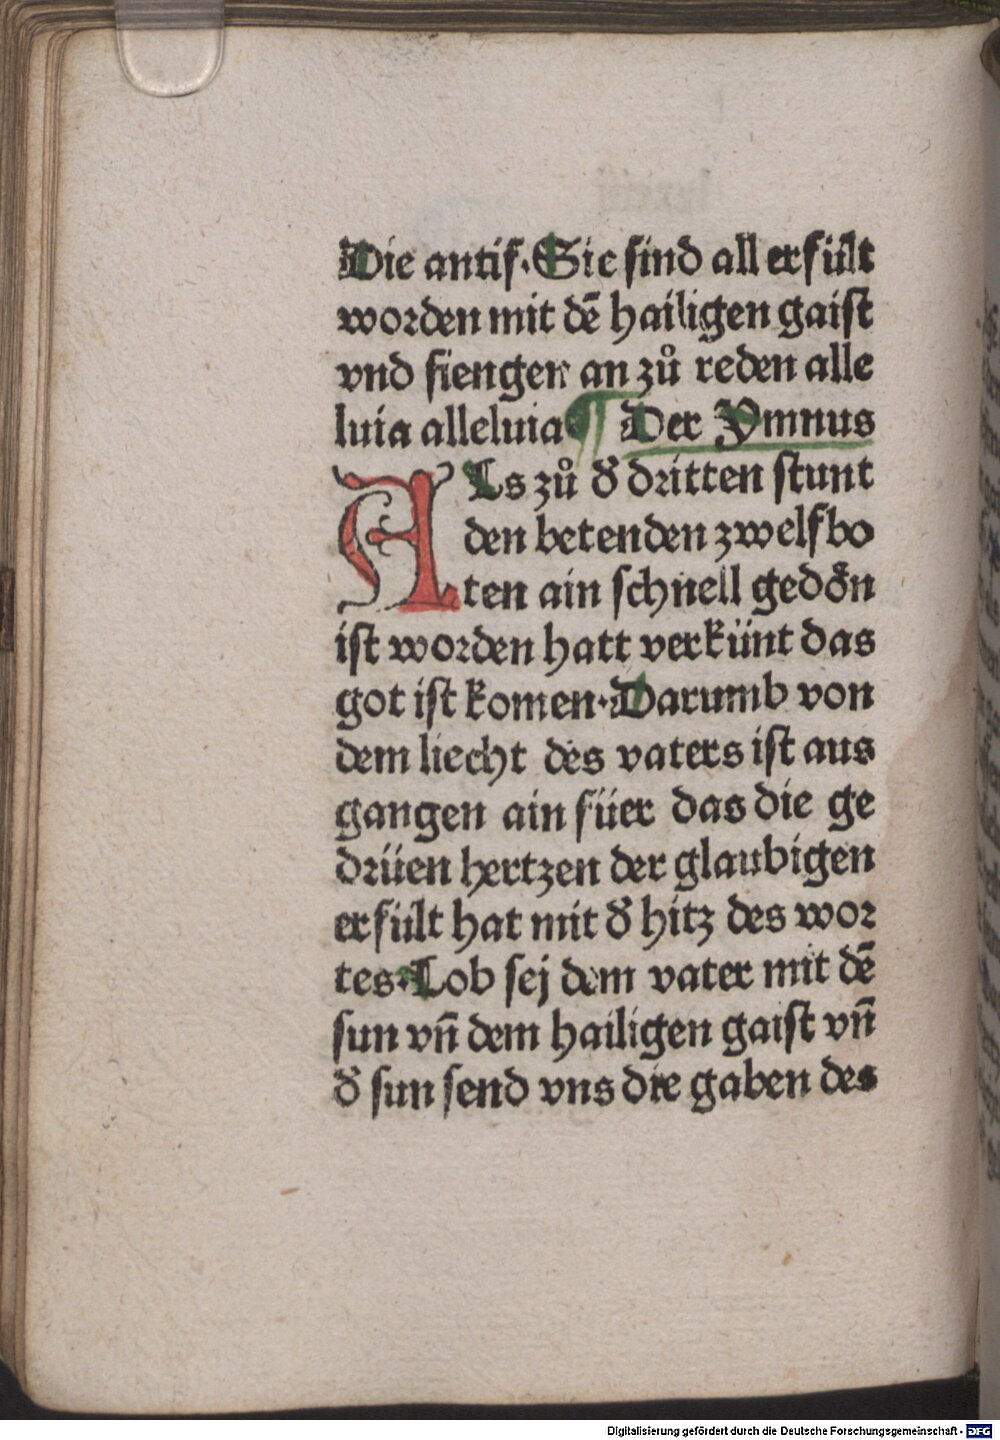 Die antif. Sie sind all erfült
worden mit dē hailigen gaist
vnd fiengen an zů reden alle
luia alleluia ¶ Der Ymnus
ALs zů đ dritten stunt
den betenden zwelfbo
ten ain schnell gedoͤn
ist worden hatt verkünt das
got ist komen. Darumb von
dem liecht des vaters ist aus
gangen ain füer das die ge
drüen hertzen der glaubigen
erfült hat mit đ hitz des wor
tes. Lob sej dem vater mit dē
sun vn̄ dem hailigen gaist vn̄
đ sun send vns die gaben des
Digitalisierung gefördert durch die Deutsche Forschungsgemeinschaft - DFG